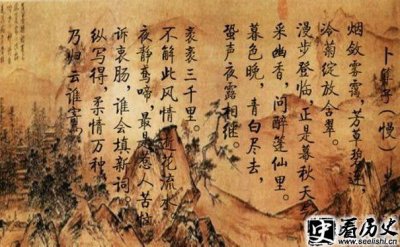 卜算子（慢）
烟敛雾霭，芳草碧连，
冷菊绽放含翠。
漫步登临，正是暮秋天
采幽香，问醉蓬仙里。
暮色晚，青白尽去，
蛩声夜露相继。
衮衮三千里。
不解此风情，花流水
夜静莺啼，最是惹人苦
诉衷肠，谁会填新词。
纵写得，柔情万种，
乃归云谁
看历史
www.seelishi.cn